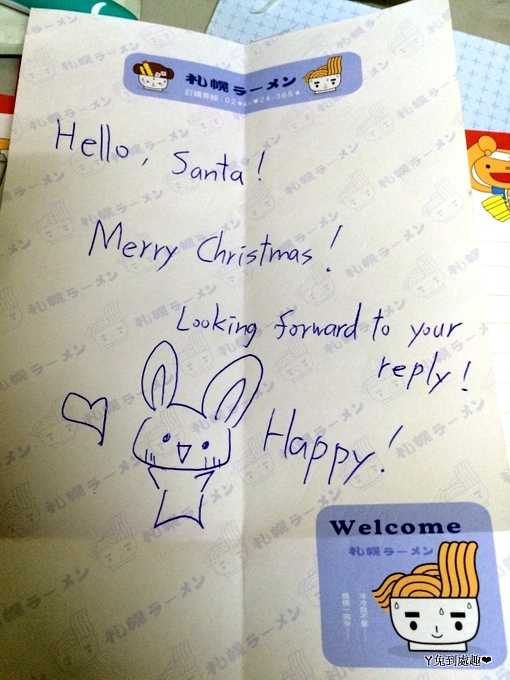 札幌ラーメン
Hello, Santa!
Merry Christmas!
Looking forward to your
reply!
Happy!
Welcome
札幌ラーメン
Y兔到處趣❤